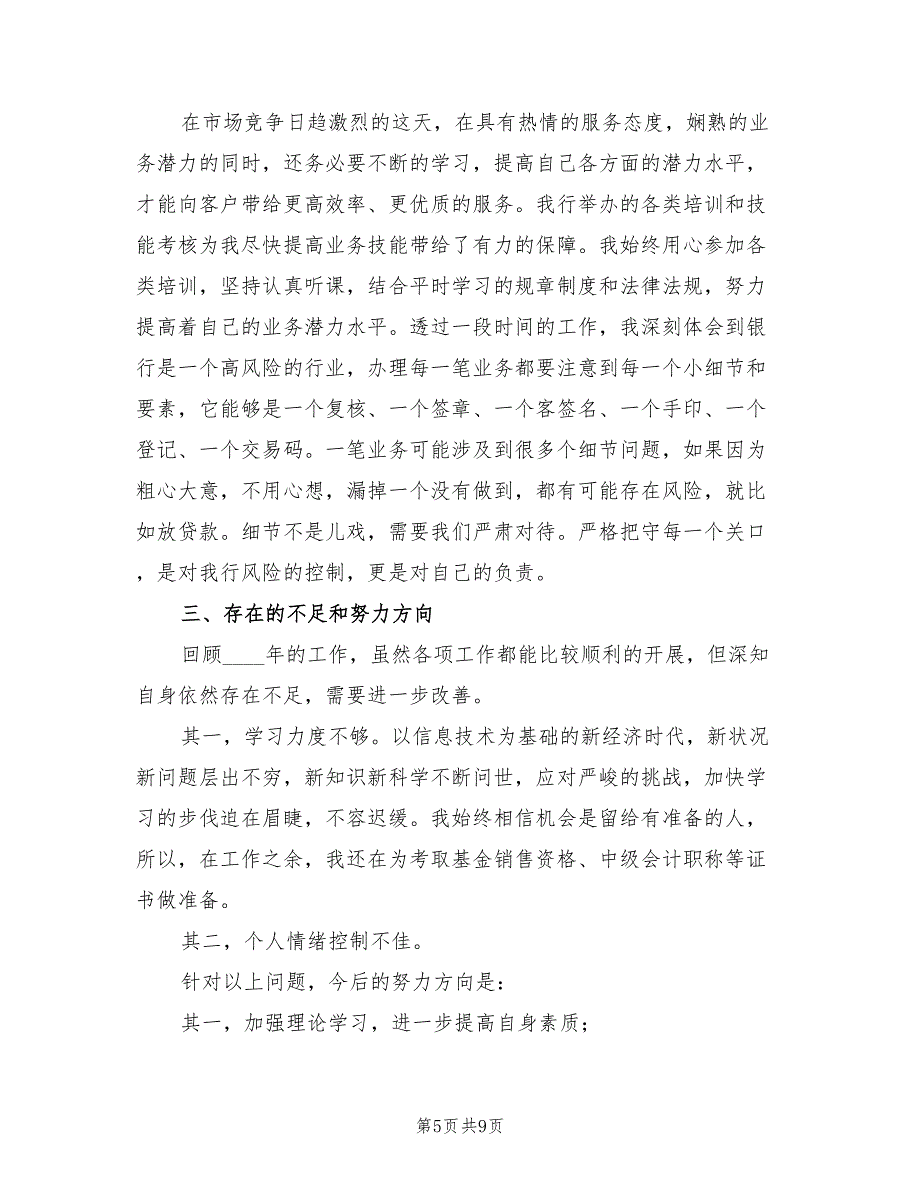 在市场竞争日趋激烈的这天，在具有热情的服务态度，娴熟的业
务潜力的同时，还务必要不断的学习，提高自己各方面的潜力水平，
才能向客户带给更高效率、更优质的服务。我行举办的各类培训和技
能考核为我尽快提高业务技能带给了有力的保障。我始终用心参加各
类培训，坚持认真听课，结合平时学习的规章制度和法律法规，努力
提高着自己的业务潜力水平。透过一段时间的工作，我深刻体会到银
行是一个高风险的行业，办理每一笔业务都要注意到每一个小细节和
要素，它能够是一个复核、一个签章、一个客签名、一个手印、一个
登记、一个交易码。一笔业务可能涉及到很多个细节问题，如果因为
粗心大意，不用心想，漏掉一个没有做到，都有可能存在风险，就比
如放贷款。细节不是儿戏，需要我们严肃对待。严格把守每一个关口
，是对我行风险的控制，更是对自己的负责。
三、存在的不足和努力方向
回顾____年的工作，虽然各项工作都能比较顺利的开展，但深知
自身依然存在不足，需要进一步改善。
其一，学习力度不够。以信息技术为基础的新经济时代，新状况
新问题层出不穷，新知识新科学不断问世，应对严峻的挑战，加快学
习的步伐迫在眉睫，不容迟缓。我始终相信机会是留给有准备的人，
所以，在工作之余，我还在为考取基金销售资格、中级会计职称等证
书做准备。
其二，个人情绪控制不佳。
针对以上问题，今后的努力方向是：
其一，加强理论学习，进一步提高自身素质；
第5页 共9页